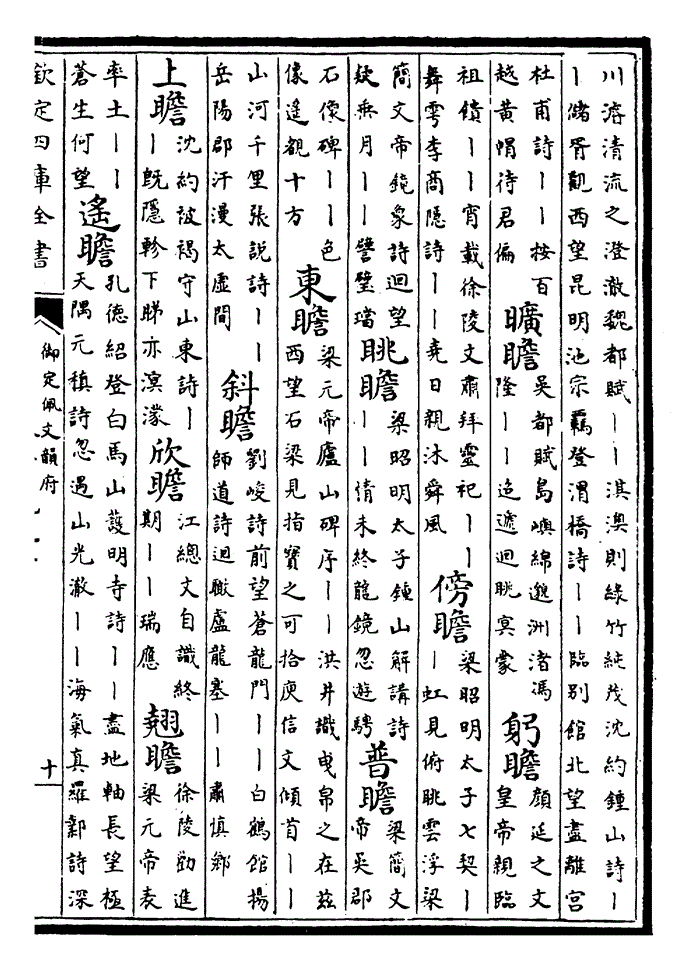 川濟清流之澄澈魏都賦丨丨淇澳則綠竹純茂沈約鍾山詩丨
丨儲胥觀西望昆明池宗羈登渭橋詩丨丨臨別館北望盡離宮
杜甫詩丨丨按百
越黃帽待君偏
曠瞻
吳都賦島嶼綿邈洲渚馮
隆丨丨迢遞迥眺冥蒙
躬瞻
顏延之文
皇帝親臨
祖饋丨丨宵載徐陵文肅拜靈祀丨丨
舞雩李商隱詩丨丨堯日親沐舜風
傍瞻
梁昭明太子七契丨
丨虹見俯眺雲浮梁
簡文帝鏡象詩迴望
疑垂月丨丨譬璧璫
眺瞻
梁昭明太子鍾山解講詩
丨丨情未終龍鏡忽遊騁
普瞻
梁簡文
帝吳郡
石像碑丨丨色
像遙觀十方
東瞻
梁元帝廬山碑序丨丨洪井識曵帛之在茲
西望石梁見指寶之可拾庾信文傾首丨丨
山河千里張說詩丨丨
岳陽郡汗漫太虛間
斜瞻
劉峻詩前望蒼龍門丨丨白鶴館楊
師道詩迴瞰盧龍塞丨丨肅慎鄉
上瞻
沈約被褐守山東詩丨
丨既隱軫下睇亦溟濛
欣瞻
江總文自識終
期丨丨瑞應
翹瞻
徐陵勸進
梁元帝表
率土丨丨
蒼生何望
遙瞻
孔德紹登白馬山護明寺詩丨丨盡地軸長望極
天隅元稹詩忽遇山光澈丨丨海氣真羅鄴詩深
欽定四庫全書
御定佩文韻府
十